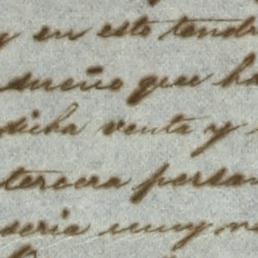 y en esto tendr
dueño que ha
dicha venta y
tercera person
seria muy